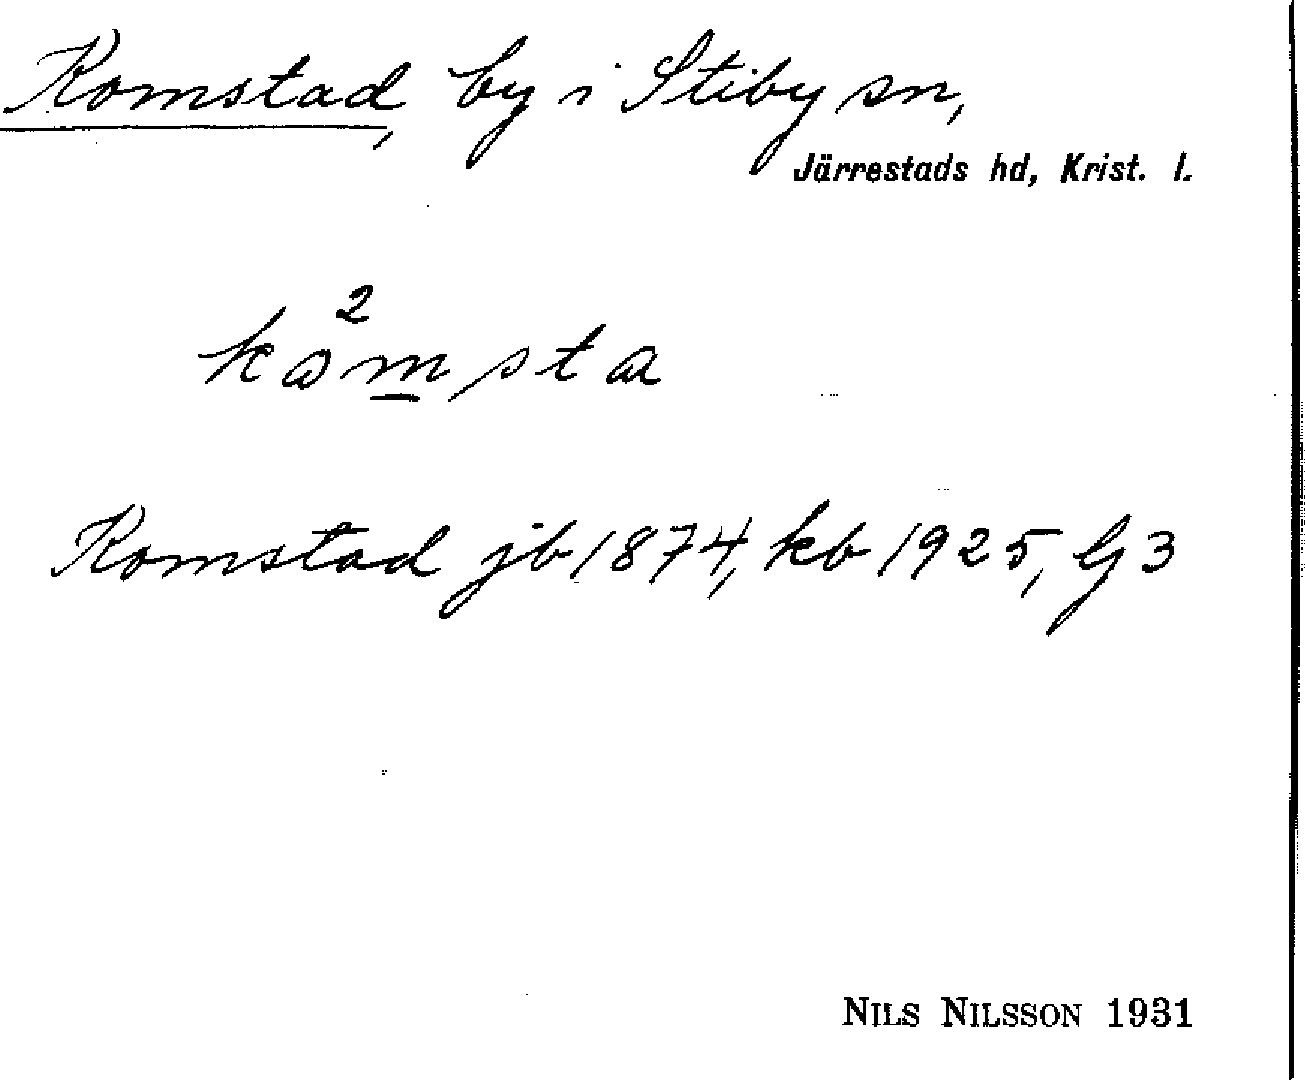 Komstad, by i Stiby sn,
Järrestads hd, Krist. l.
2
kamsta
Komstad jb 1874, kb 1925, G3
NILS NILSSON 1931